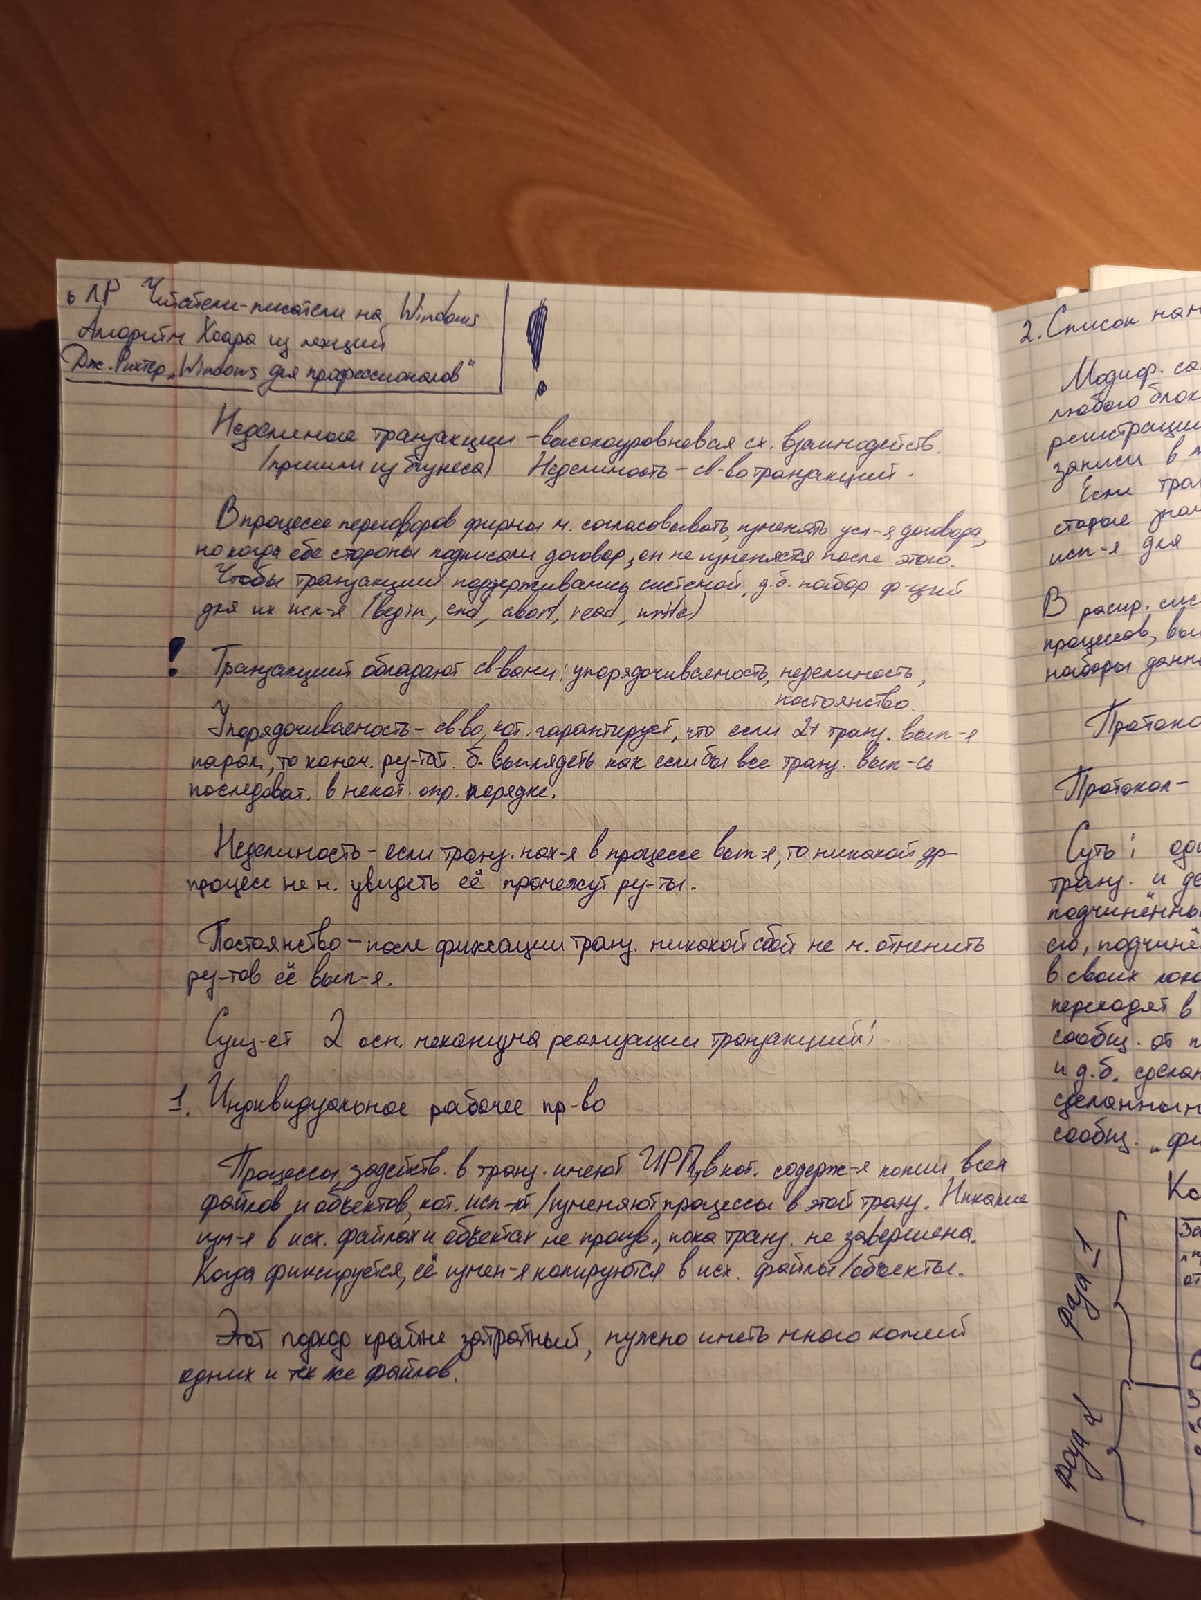 6 ЛР Читатели-писатели на Windows
Алгоритм Хоара из лекций
Дж. Рихтер „Windows для профессионалов"
!
Неделимые транзакции – высокоуровневая сх. взаимодейств.
(пришли из бизнеса) Неделимость – св-во транзакций.
В процессе переговоров фирмы м. согласовывать, изменять усл-я договора,
но когда обе стороны подписали договор, он не изменяется после этого.
Чтобы транзакции поддерживались системой, д.б. набор ф-ций
для их исп-я (begin, end, abort, read, write)
! Транзакций обладают св-вами: упорядочиваемость, неделимость,
постоянство.
Упорядочиваемость – св-во, кот. гарантирует, что если 2+ транз. вып-я
парал., то конеч. рез-тат. б. выглядеть как если бы все транз. вып-сь
последоват. в некот. опр. порядке.
Неделимость – если транз. нах-я в процессе вып-я, то никакой др-
процесс не м. увидеть её промежут рез-ты.
Постоянство – после фиксации транз. никакой сбой не м. отменить
рез-тов её вып-я.
Сущ-ет 2 осн. механизма реализации транзакций:
1. Индивидуальное рабочее пр-во
Процессы, задейств. в транз. имеют ИРП, в кот. содерж-я копии всех
файлов и объектов, кот. исп-ют/изменяют процессы в этой транз. Никакие
изм-я в исх. файлах и объектах не произв., пока транз. не завершена.
Когда фиксируется, её измен-я копируются в исх. файлы/объекты.
Этот подход крайне затратный, нужно иметь много копий
одних и тех же файлов.
2. Список нам
Модиф. са
любого блок
регистраци
записи в л
Если тран
старые знач
исп-я для
В расир. сис
процессов, вып
наборы данн
Протоко
Протокол –
Суть: оди
транз. и де
подчинённы
его, подчинё
в своих лока
переходят в
сообщ. от п
и д.б. сделан
сделанным
сообщ. „фи
Ко
фаза 1
За
„п
от
фаза 2